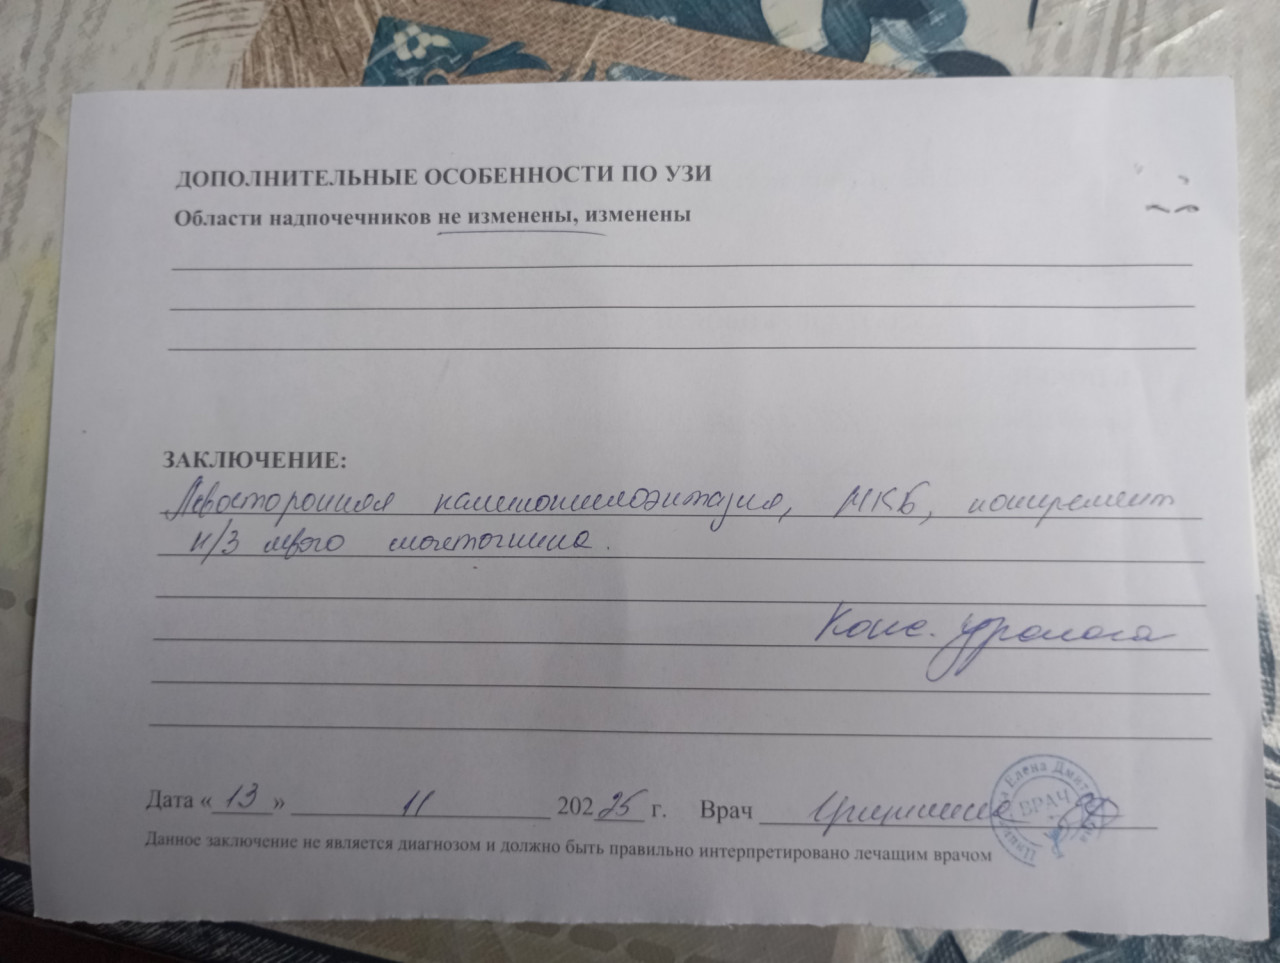 ДОПОЛНИТЕЛЬНЫЕ ОСОБЕННОСТИ ПО УЗИ
Области надпочечников не изменены, изменены
ЗАКЛЮЧЕНИЕ:
Левосторонняя каликопиелоэктазия, МКБ, конкремент
н/3 левого мочеточника.
Конс. уролога
Дата «13» 11 20225 г. Врач
Елена Дмит
ВРАЧ
Данное заключение не является диагнозом и должно быть правильно интерпретировано лечащим врачом